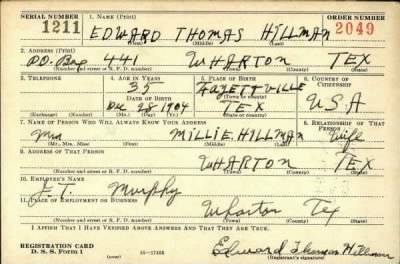 SERIAL NUMBER 1. NAME (Print) ORDER NUMBER
1211 EDWARD THOMAS HILLMAN 2049
(First) (Middle) (Last)
2. ADDRESS (Print)
P.O. Box 441 WHARTON TEX
(Number and street or R. F. D. number) (Town) (County) (State)
3. TELEPHONE 4. AGE IN YEARS 5. PLACE OF BIRTH 6. COUNTRY OF CITIZENSHIP
35 FAYETTVILLE
DATE OF BIRTH (Town or county)
Dec 28-1904 TEX U.S.A
(Exchange) (Number) (Mo.) (Day) (Yr.) (State or country)
7. NAME OF PERSON WHO WILL ALWAYS KNOW YOUR ADDRESS 8. RELATIONSHIP OF THAT PERSON
Mrs MILLIE HILLMAN Wife
(Mr., Mrs., Miss) (First) (Middle) (Last)
9. ADDRESS OF THAT PERSON
WHARTON TEX
(Number and street or R. F. D. number) (Town) (County) (State)
10. EMPLOYER'S NAME
J.T. Murphy
11. PLACE OF EMPLOYMENT OR BUSINESS
Wharton Tex
(Number and street or R. F. D. number) (Town) (County) (State)
I AFFIRM THAT I HAVE VERIFIED ABOVE ANSWERS AND THAT THEY ARE TRUE.
REGISTRATION CARD
D. S. S. Form 1 (over) Edward Thomas Hillman
(Registrant's signature)